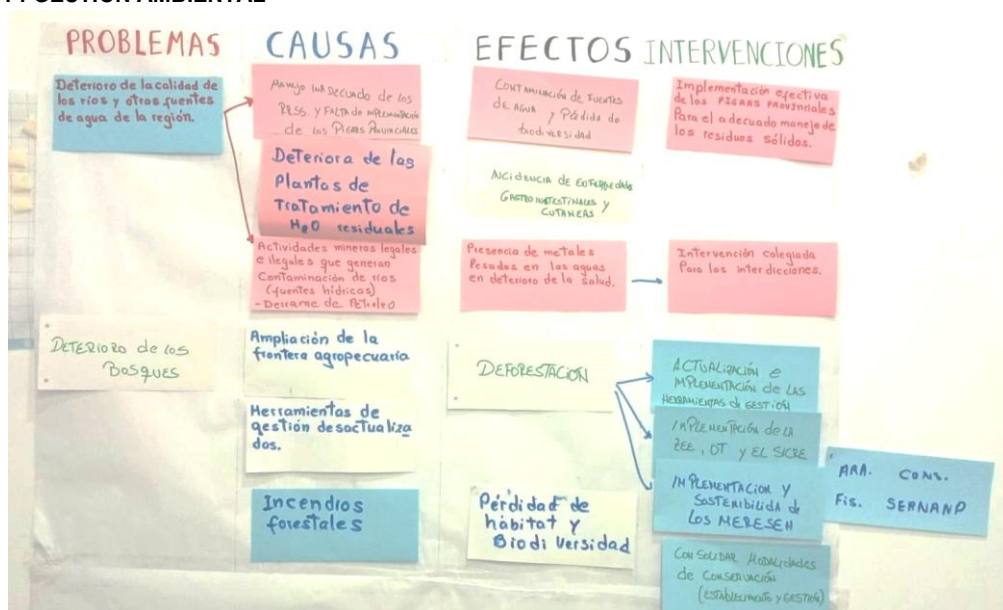 PROBLEMAS
Deterioro de la calidad de
los ríos y otras fuentes
de agua de la región.
DETERIORO de los
BOSQUES
CAUSAS
Manejo inadecuado de los
RRSS. y FALTA de implementación
de los Pigars Provinciales
Deteriora de las
Plantas de
Tratamiento de
H2O residuales
Actividades mineras legales
e ilegales que generan
Contaminación de ríos
(fuentes hídricas)
- Derrame de Petroleo
Ampliación de la
frontera agropecuaria
Herramientas de
gestión desactualiza
dos.
Incendios
forestales
EFECTOS
CONTAMINACIÓN de FUENTES
de AGUA y Pérdida de
biodiversidad
INCIDENCIA DE ENFERMEDADES
GASTROINTESTINALES Y
CUTANEAS
Presencia de metales
Pesados en las aguas
en deterioro de la salud.
DEFORESTACIÓN
Pérdidad de
hábitat y
Biodi Versidad
INTERVENCIONES
Implementación efectiva
de los PIGARS PROVINCIALES
Para el adecuado manejo de
los residuos sólidos.
Intervención colegiada
Para las inter dicciones.
ACTUALIZACIÓN e
IMPLEMENTACIÓN de LAS
HERRAMIENTAS de GESTIÓN
IMPLEMENTACIÓN de LA
ZEE, OT y EL SICRE
IMPLEMENTACION Y
SOSTENIBILIDA de
LOS MERESEH
ARA. CONS.
Fis. SERNANP
CONSOLIDAR MODALIDADES
de CONSERVACIÓN
(ESTABLECIMIENTO y GESTIÓN)